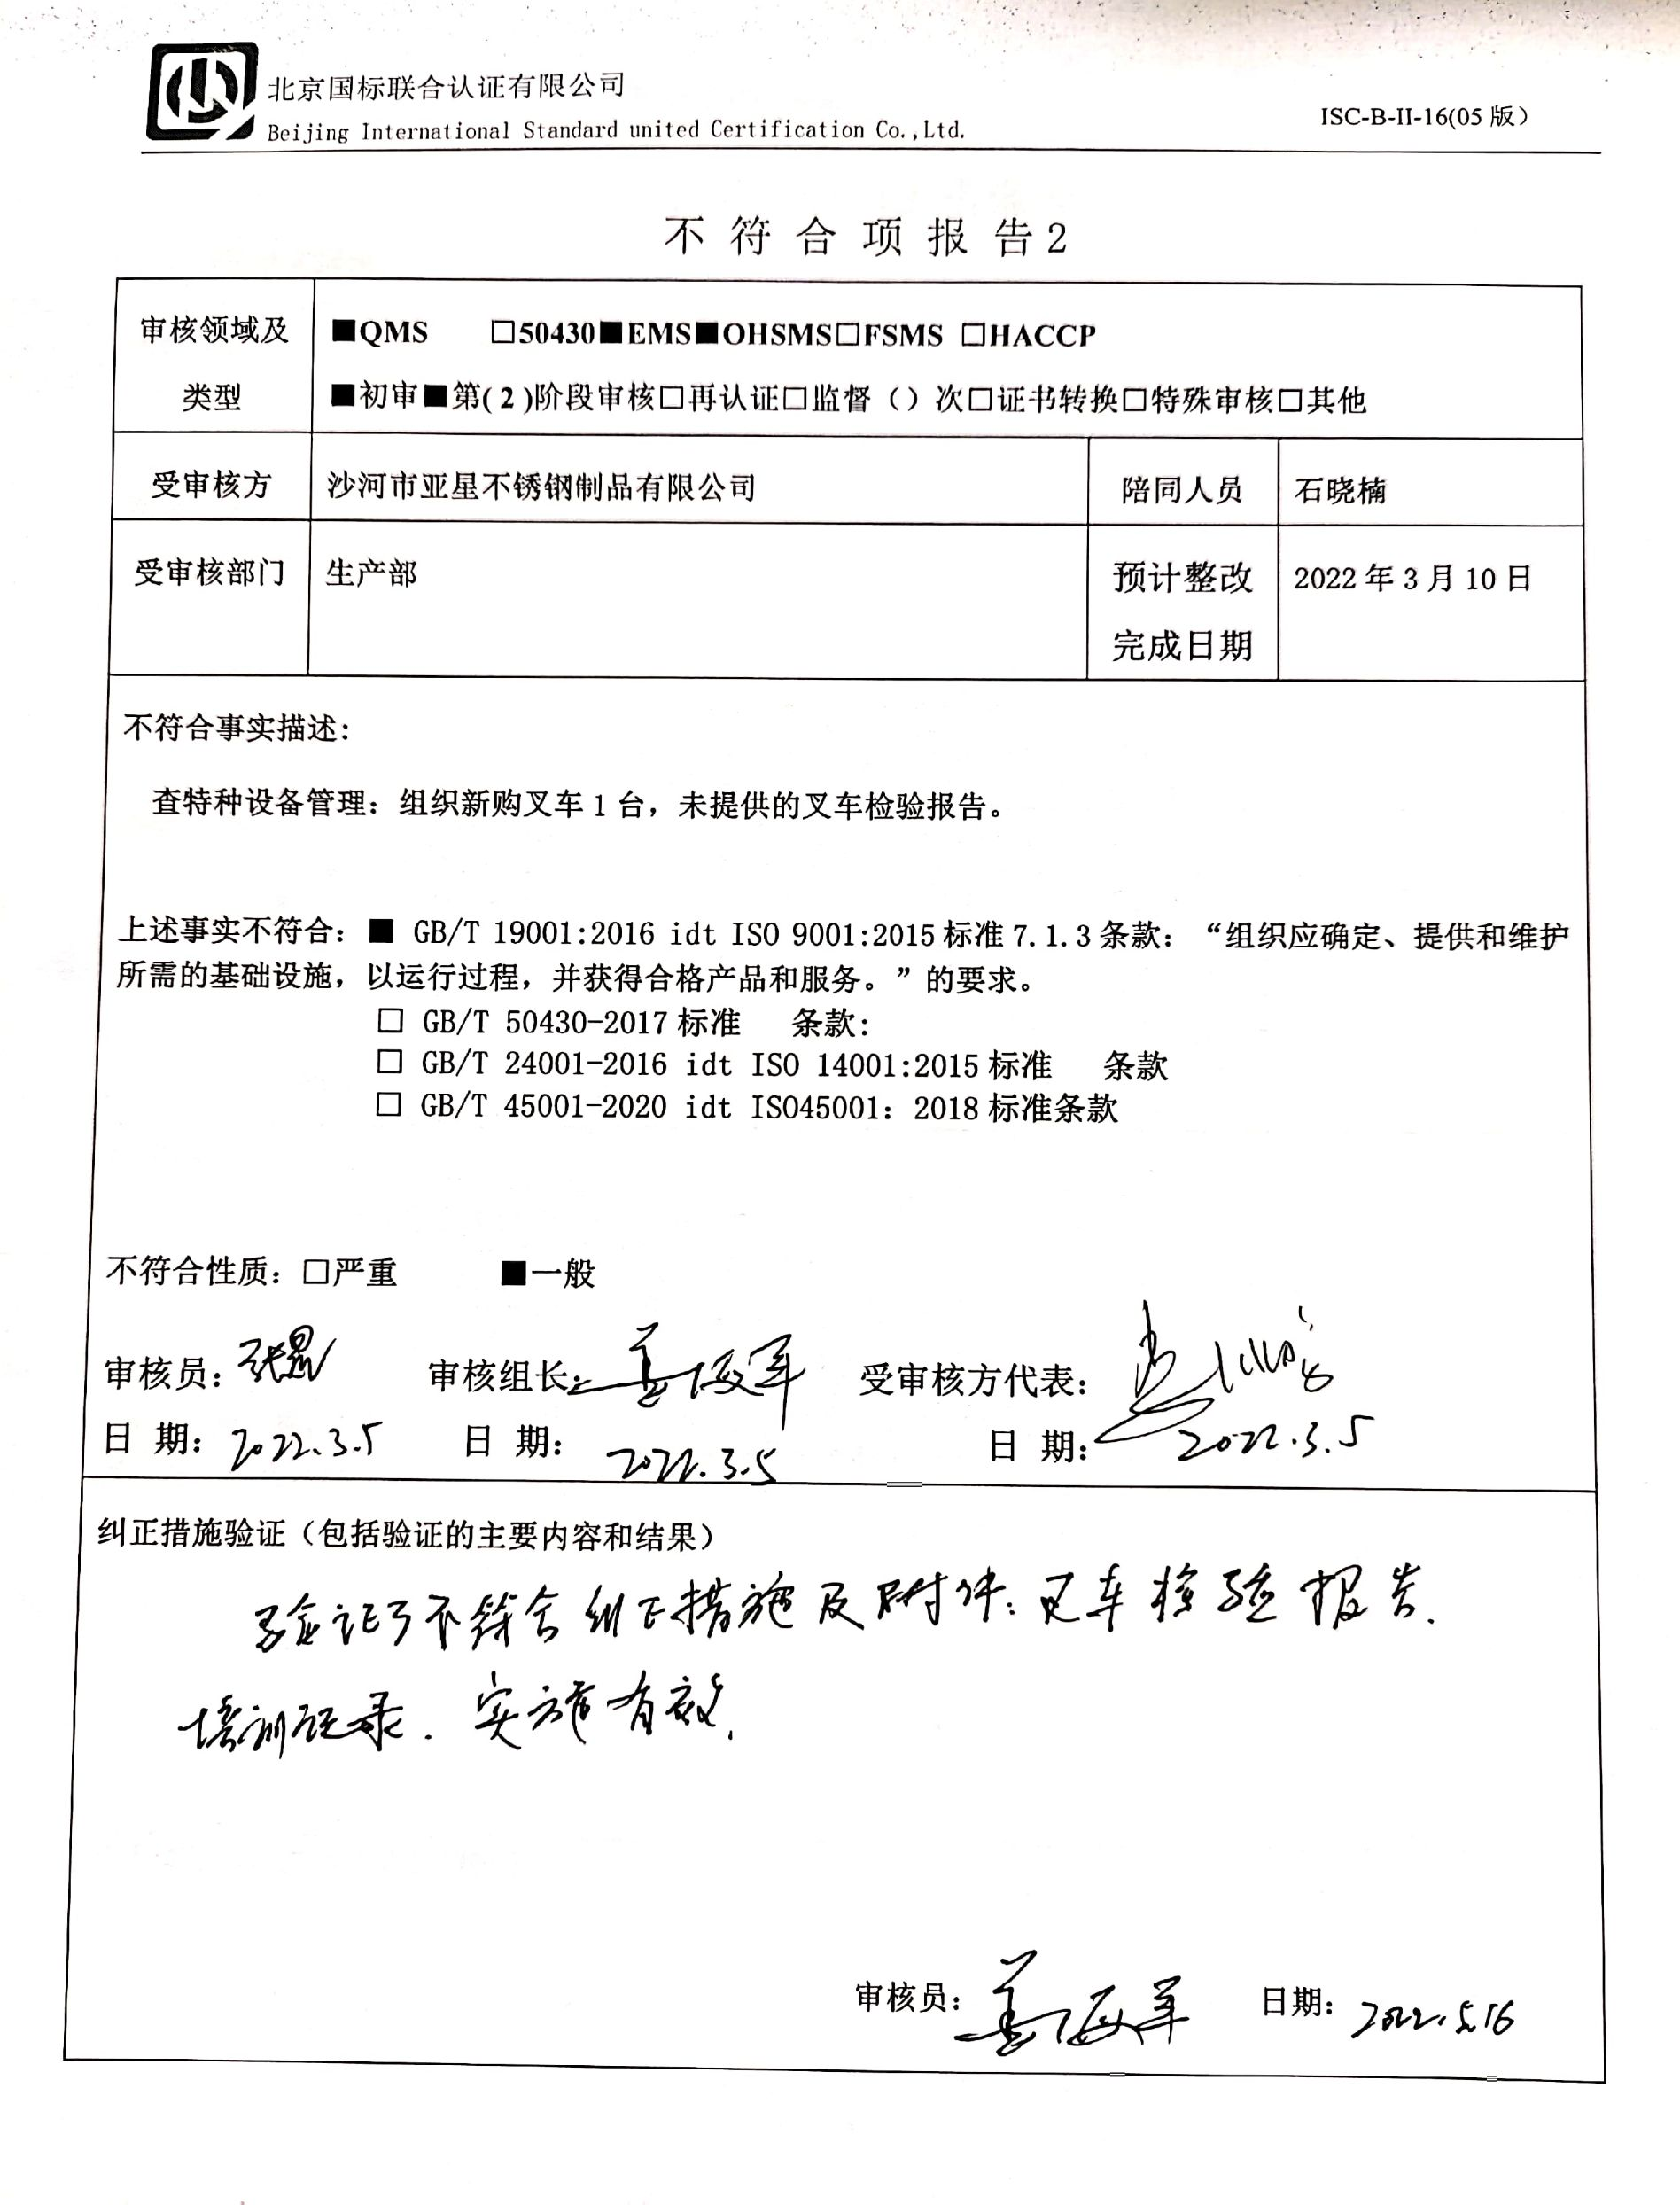 北京国标联合认证有限公司
Beijing International Standard united Certification Co.,Ltd.
ISC-B-II-16(05 版)
不符合项报告2
审核领域及
类型
■QMS □50430■EMS■OHSMS□FSMS □HACCP
■初审■第(2)阶段审核□再认证□监督（）次□证书转换□特殊审核□其他
受审核方 沙河市亚星不锈钢制品有限公司 陪同人员 石晓楠
受审核部门 生产部 预计整改
完成日期
2022年3月10日
不符合事实描述:
查特种设备管理：组织新购叉车1台，未提供的叉车检验报告。
上述事实不符合：■ GB/T 19001:2016 idt ISO 9001:2015标准7.1.3条款：“组织应确定、提供和维护
所需的基础设施，以运行过程，并获得合格产品和服务。”的要求。
□ GB/T 50430-2017标准 条款：
□ GB/T 24001-2016 idt ISO 14001:2015标准 条款
□ GB/T 45001-2020 idt ISO45001：2018标准条款
不符合性质：□严重 ■一般
审核员： 审核组长： 姜海军 受审核方代表：
日 期：2022.3.5 日 期：2022.3.5 日 期：2022.3.5
纠正措施验证（包括验证的主要内容和结果）
验证了不符合纠正措施及附件：叉车检验报告.
培训记录. 实施有效.
审核员：姜海军 日期：2022.